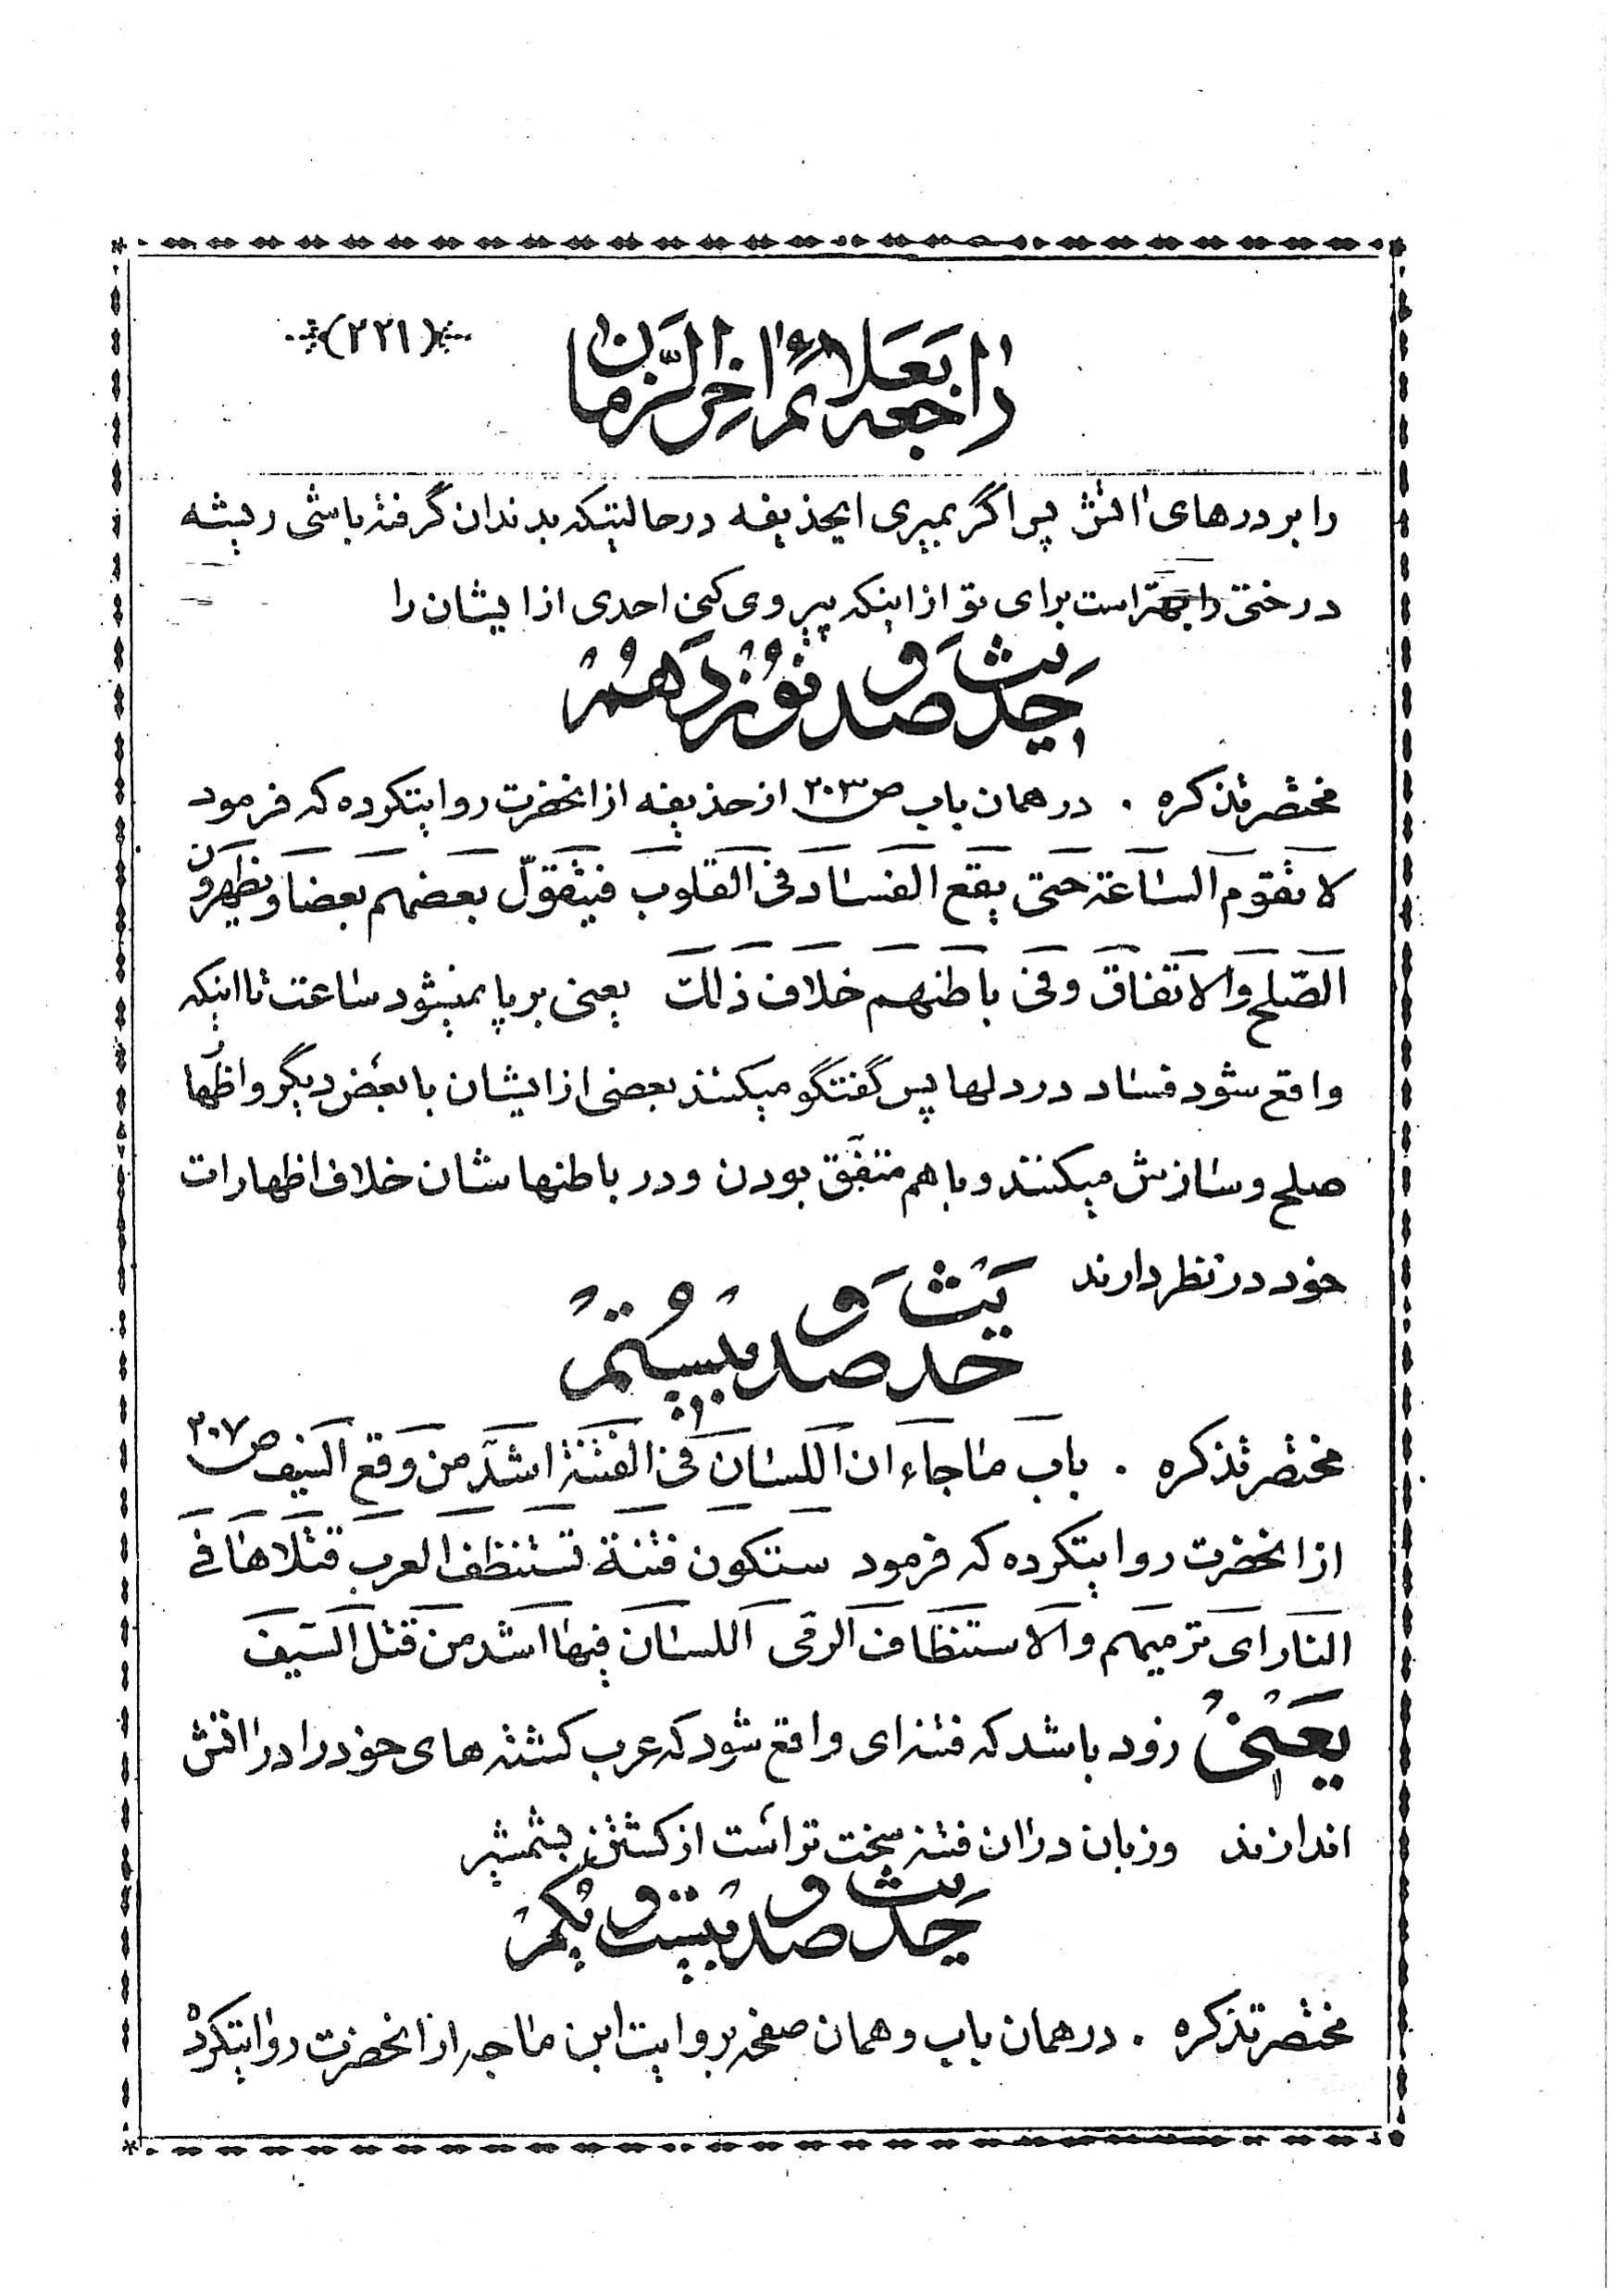 راجعه بعلائم اخر الزمان
(۲۲۱)
را بر درهای اتش پس اگر بمیری ایحذیفه در حالتیکه بدندان گرفته باشی ریشه
درختی را بهتر است برای تو از اینکه پیروی کنی احدی از ایشان را
حدیث صد و نوزدهم
مختصر تذکره . در همان باب ص۲۰۳ از حذیفه از انحضرت روایتکرده که فرمود
لا تقوم الساعة حتی یقع الفساد فی القلوب فیتقول بعضهم بعضا و یظهرون
الصّلح و الاتفاق و فی باطنهم خلاف ذالک یعنی بر پا نمیشود ساعت تا اینکه
واقع شود فساد در دلها پس گفتگو میکنند بعضی از ایشان با بعض دیگر و اظهار
صلح و سازش میکنند و با هم متفق بودن و در باطنهاشان خلاف اظهارات
خود در نظر دارند
حدیث صد و بیستم
مختصر تذکره . باب ما جاء ان اللسان فی الفتنة اشدّ من وقع السیف ص۲۰۷
از انحضرت روایتکرده که فرمود ستکون فتنة تستنظف العرب قتلاها فی
النار ای ترمیهم و الاستنظاف الرمی اللسان فیها اشد من قتل السیف
یعنی زود باشد که فتنه‌ای واقع شود که عرب کشته های خود را در اتش
اندازند و زبان در ان فتنه سخت تر است از کشتن بشمشیر
حدیث صد و بیست و یکم
مختصر تذکره . در همان باب و همان صفحه بروایت ابن ماجه از انحضرت روایتکرده